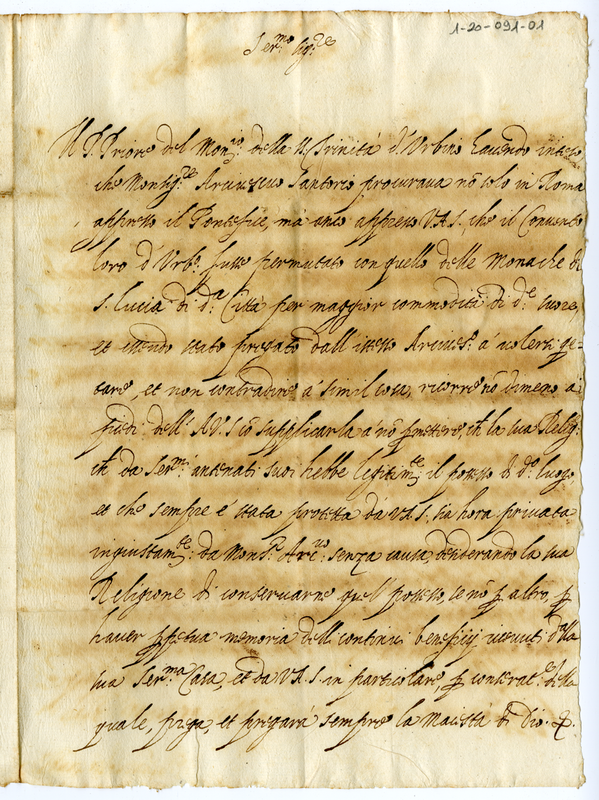 1-20-091-01
Ser.mo Sig.re
Il P. Priore del Mon.rio della SS. Trinità d'Urbino havendo inteso
che Monsig.re Arcivescovo Santorio procurava nõ solo in Roma
appresso il Pontefice, mà anco appresso V.A.S., che il Convento
loro d'Urb.o fusse permutato con quello delle Monache di
S. Lucia di d.a Città per maggior commodità di d.e suore,
et essendo stato pregato dall'istesso Arcives.o à volersi
et non contradire à simil cosa, ricorre nõ dimeno a i
piedi dell'A.V.S. cõ supplicarla à nõ la sua Relig.e
da Ser.mi antenati suoi hebbe legitim.te il possesso di d.o luogo
et che sempre è stata protetta dà V.A.S. sia hora privata
ingiustam.te da Mons.r Arc.vo senza causa, desiderando la sua
Religione di conservarne quel possesso, se nõ altro,
haver memoria delli continui beneficij ricevuti dalla
sua Ser.ma Casa, et da V.A.S. in particolare, della
quale, prega, et pregarà sempre la Maestà di Dio.